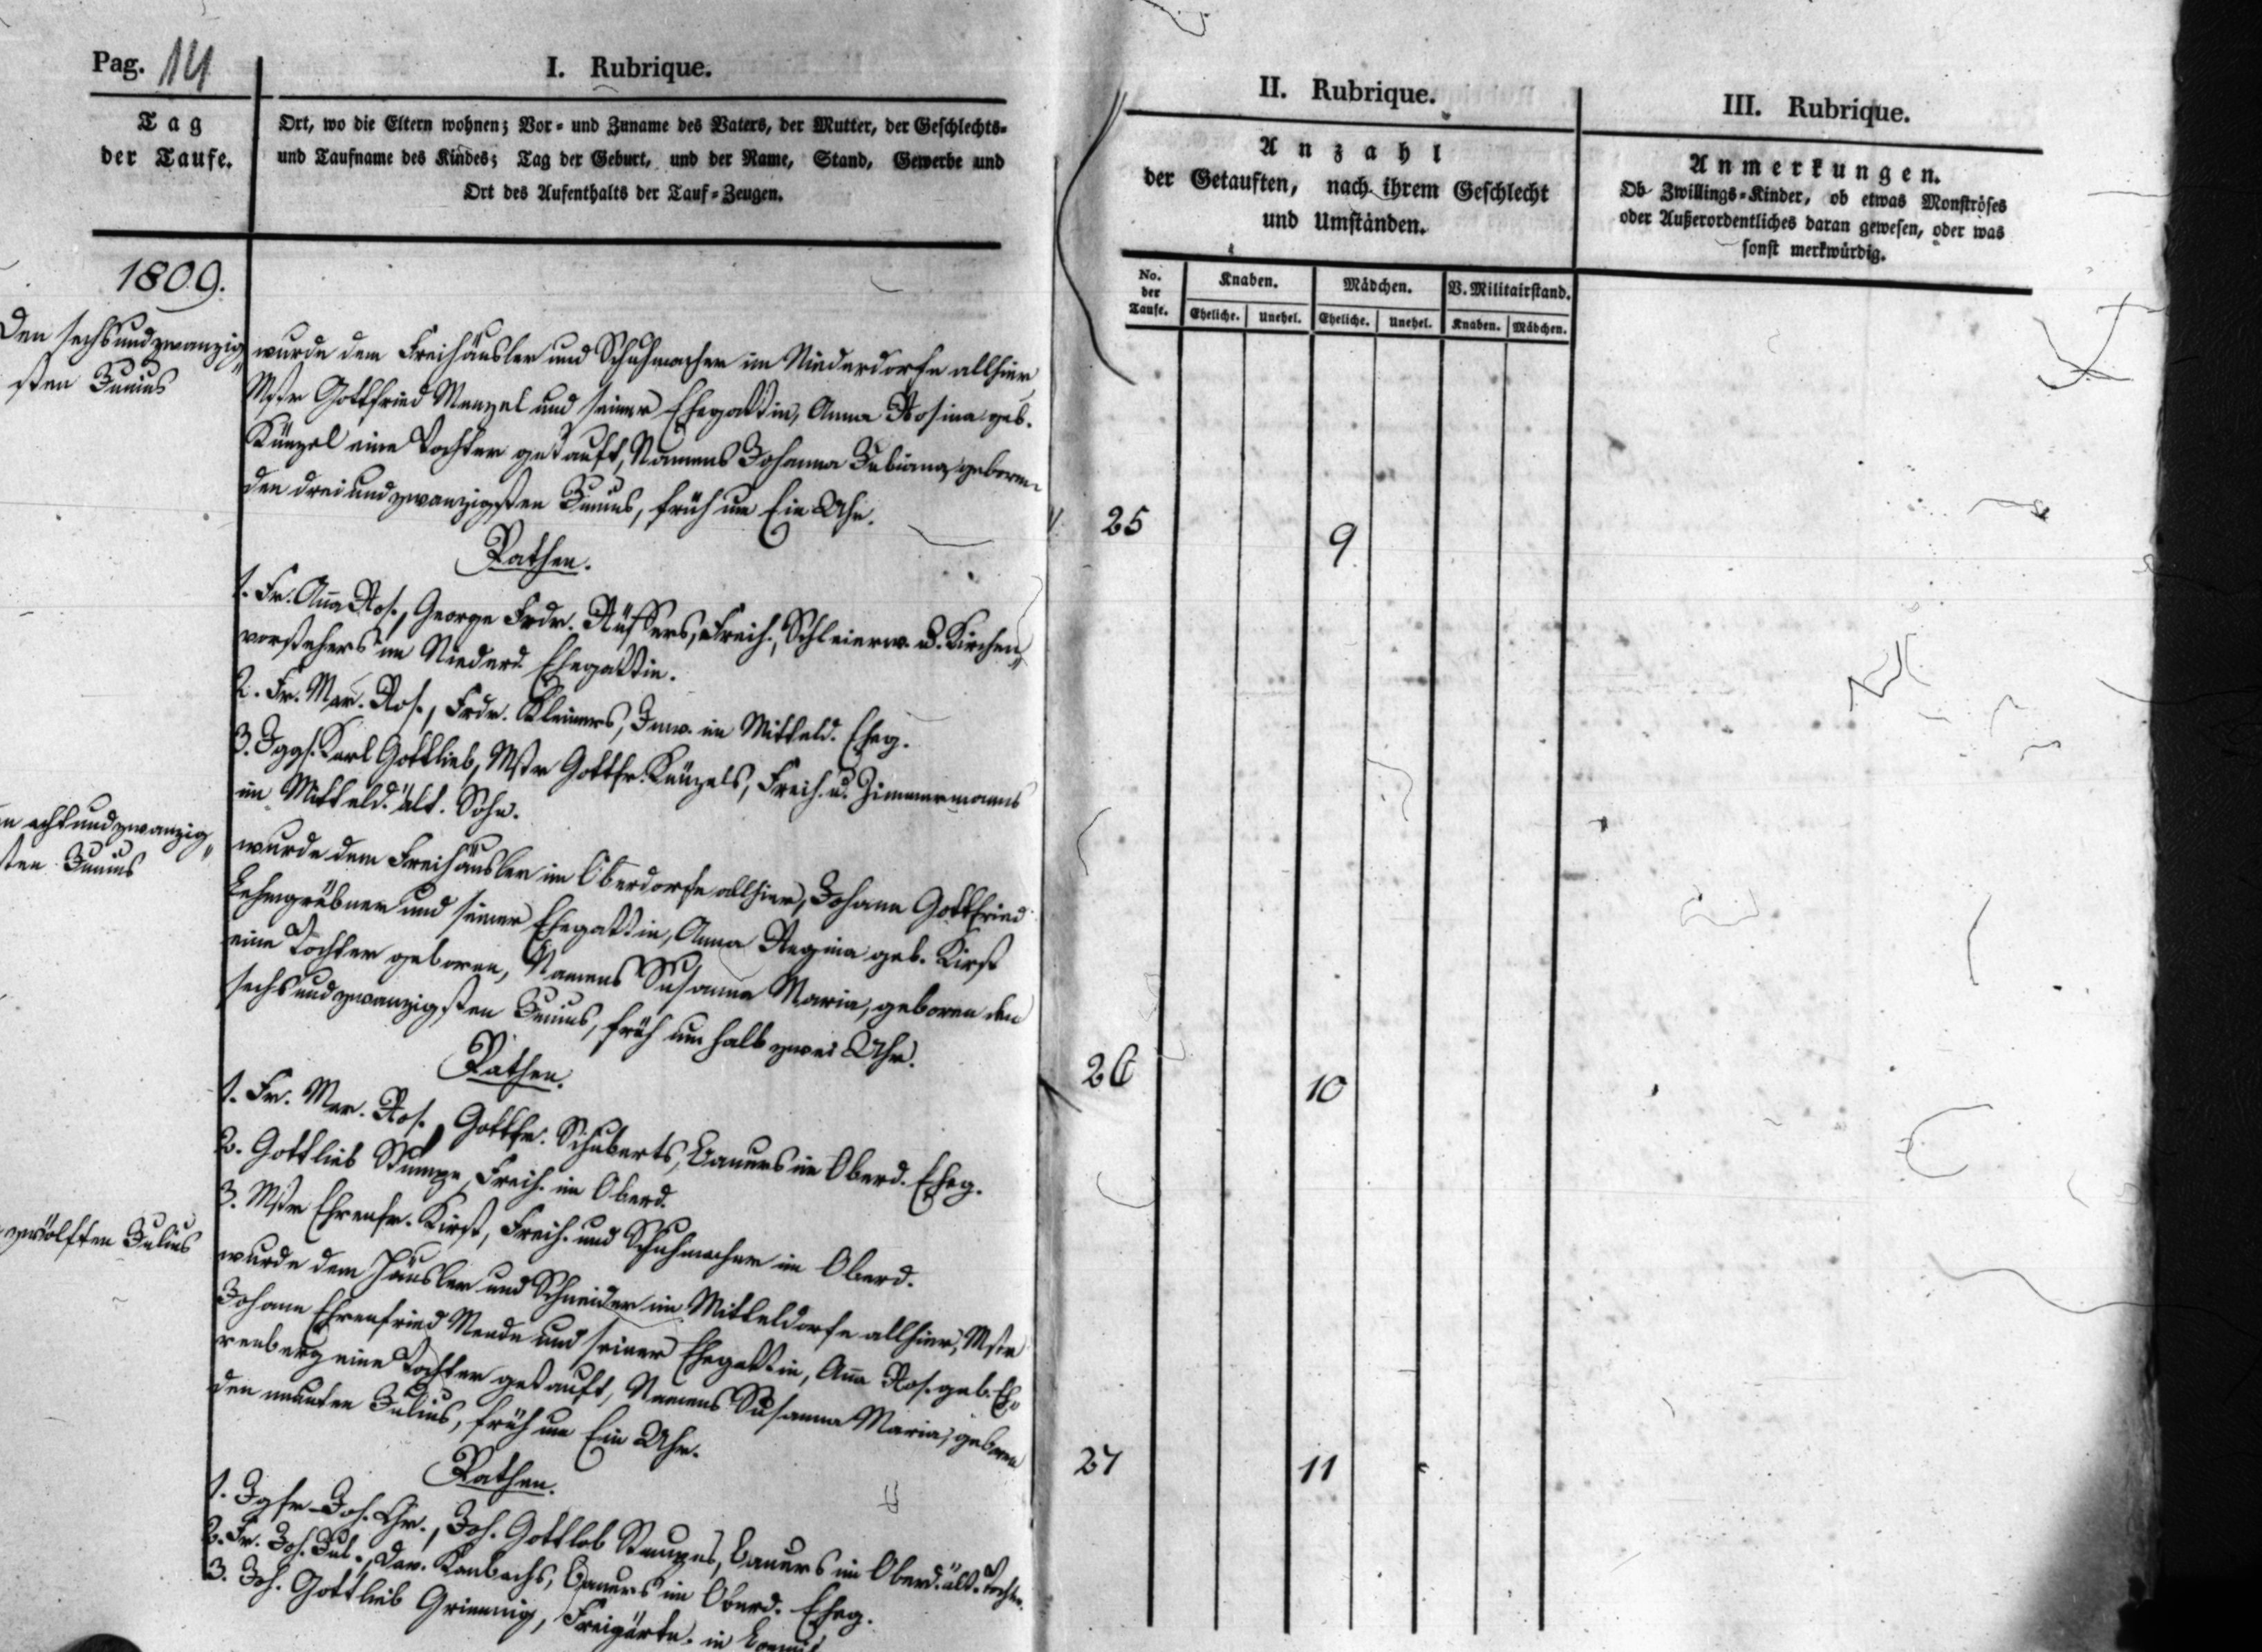 Pag. 14
I. Rubrique.
Tag
der Taufe.
Ort, wo die Eltern wohnen; Vor- und Zuname des Vaters, der Mutter, der Geschlechts-
und Taufname des Kindes; Tag der Geburt, und der Name, Stand, Gewerbe und
Ort des Aufenthalts der Tauf-Zeugen.
1809.
Den sechsundzwanzig
sten Junius
wurde dem Freihäusler und Schuhmacher im Niederdorfe allhier
Mstr Gottfried Menzel und seiner Ehegattin, Anna Rosina geb.
Künzel eine Tochter getauft, Namens Johanna Juliana, geboren
den dreiundzwanzigsten Junius, früh um Ein Uhr.
Pathen.
1. Fr. Aña Ros., George Frdr. Rüffers, Freih., Schleierw. u. Kirchen
vorstehers im Niederd. Ehegattin.
2. Fr. Mar. Ros., Frdr. Kleiners, Inw. im Mitteld. Eheg.
3. Jggs. Karl Gottlieb, Mstr Gottfr. Künzels, Freih. u. Zimmermanns
im Mitteld. ält. Sohn.
n achtundzwanzig
sten Junius
wurde dem Freihäusler im Oberdorfe allhier, Johann Gottfried
Lehmgrübner und seiner Ehegattin, Anna Regina geb. Kirst
eine Tochter geboren, Namens Susanna Maria, geboren den
sechsundzwanzigsten Junius, früh um halb zwei Uhr.
Pathen.
1. Fr. Mar. Ros., Gottfr. Schuberts, Bauers im Oberd. Eheg.
2. Gottlieb Stumpe, Freih. im Oberd.
3. Mstr Ehrenfr. Kirst, Freih. und Schuhmacher im Oberd.
zwölften Julius
wurde dem Häusler und Schneider im Mitteldorfe allhier, Mstr
Johann Ehrenfried Mende und seiner Ehegattin, Aña Ros. geb. Eh
renberg eine Tochter getauft, Namens Susanna Maria, geboren
den neunten Julius, früh um Ein Uhr.
Pathen.
1. Jgfr Joh. Chr., Joh. Gottlob Stumpes, Bauers im Oberd. ält. Tochter.
2. Fr. Joh. Jul., Dav. Kambachs, Bauers im Oberd. Eheg.
3. Joh. Gottlieb Frimmig, Freigärtn. in
II. Rubrique.
Anzahl
der Getauften, nach ihrem Geschlecht
und Umständen.
No. der Taufe.
Knaben.
Mädchen.
V. Militairstand.
Eheliche. Unehel. Eheliche. Unehel. Knaben. Mädchen.
25 9
26 10
27 11
III. Rubrique.
Anmerkungen.
Ob Zwillings-Kinder, ob etwas Monströses
oder Außerordentliches daran gewesen, oder was
sonst merkwürdig.